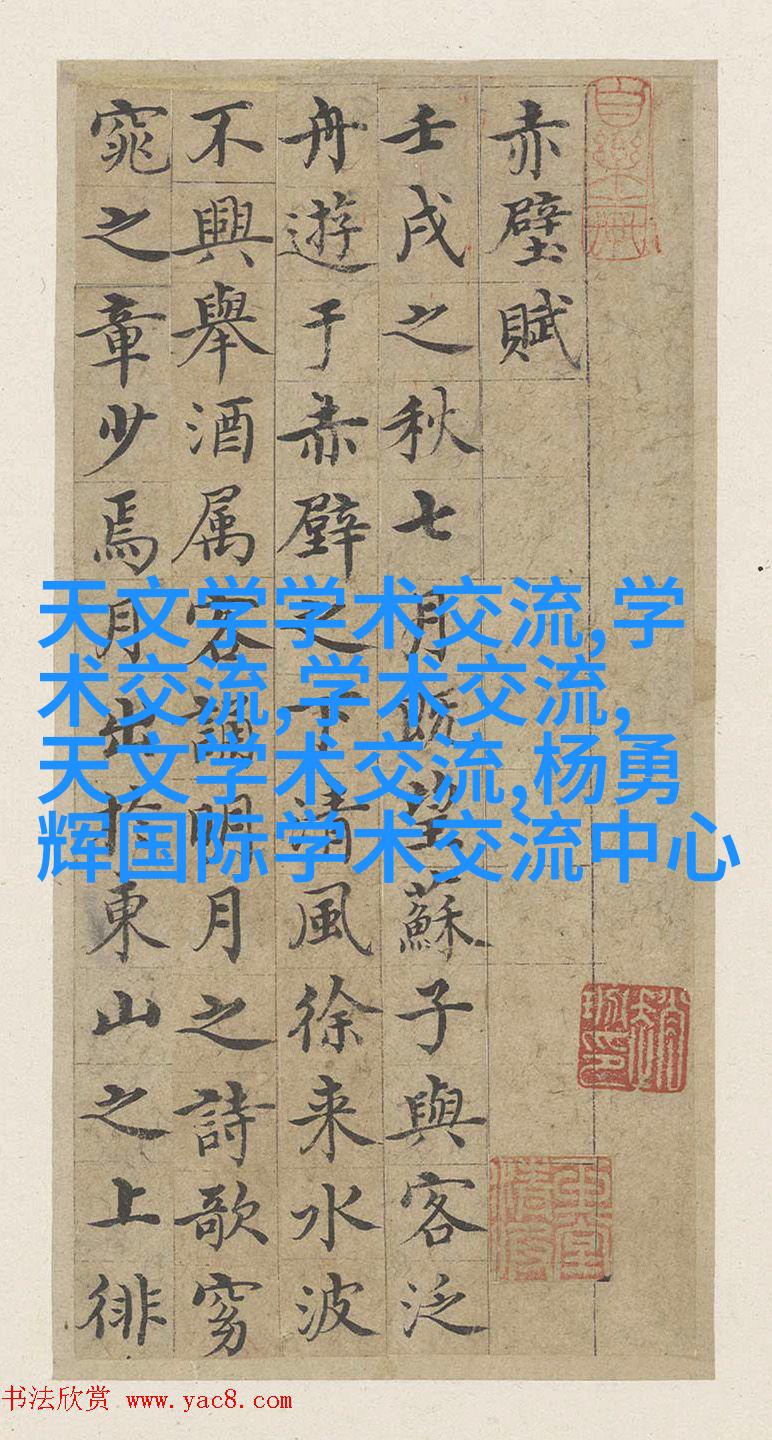 赤壁賦
壬戌之秋七月既望蘇子與客泛
舟遊于赤壁之下清風徐来水波
不興舉酒属客誦明月之詩歌窈
窕之章少焉月出於東山之上徘
天文学学术交流,学
术交流,学术交流,
天文学术交流,杨勇
辉国际学术交流中心
书法欣赏 www.yac8.com